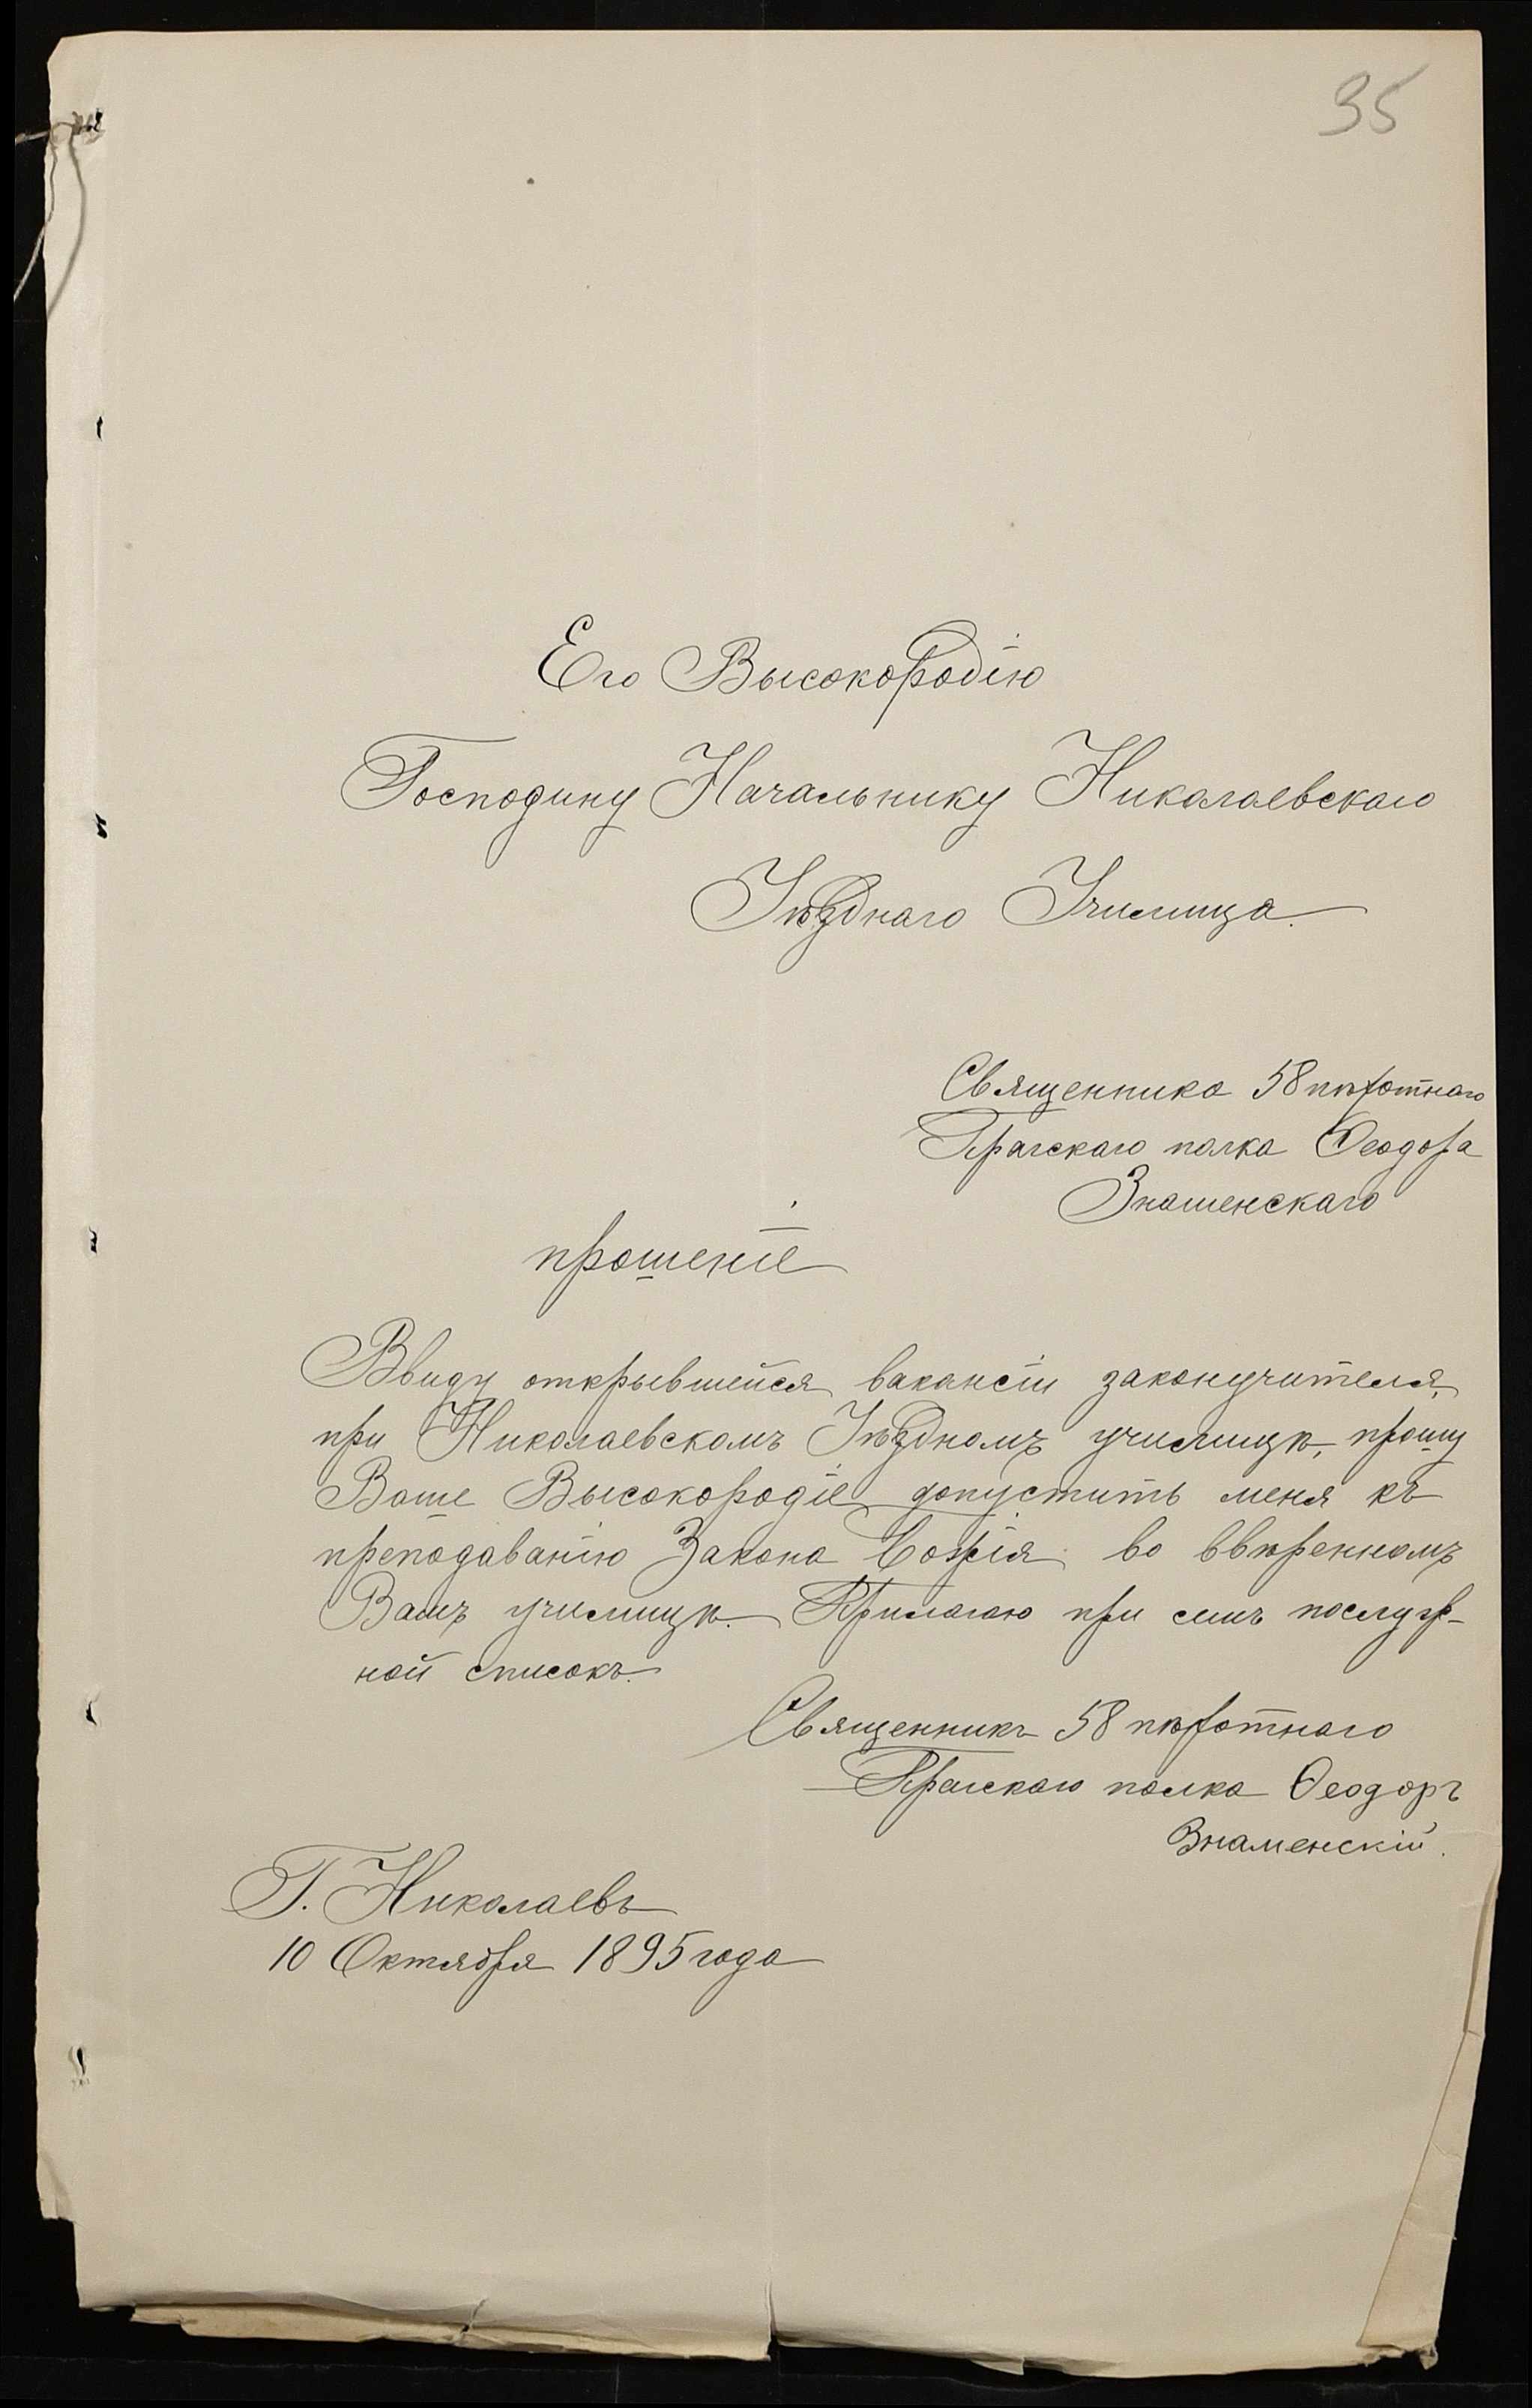 95
Его Высокородію
Господину Начальнику Николаевскаго
Уѣзднаго Училища.
Священника 58 пѣхотнаго
Прагскаго полка Ѳеодора
Знаменскаго
прошеніе
Ввиду открывшейся вакансіи законучителя,
при Николаевскомъ Уѣздномъ училищѣ, прошу
Ваше Высокородіе допустить меня къ
преподаванію Закона Божія во ввѣренномъ
Вамъ училищѣ. Прилагаю при семъ послуж-
ной списокъ.
Священникъ 58 пѣхотнаго
Прагскаго полка Ѳеодоръ
Знаменскій.
Г. Николаевъ
10 Октября 1895 года